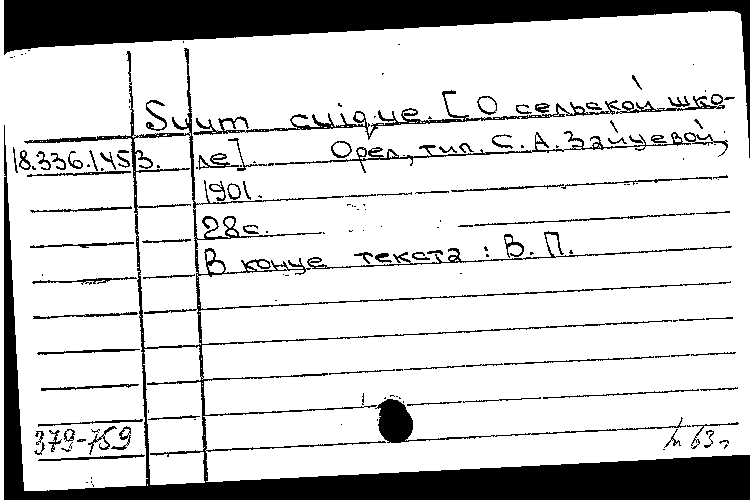 Suum cuique. [О сельской шко-
18.336.1.453. ле]. Орел, тип. С. А. Зайцевой,
1901.
28с.
В конце текста: В. П.
379-759
63г